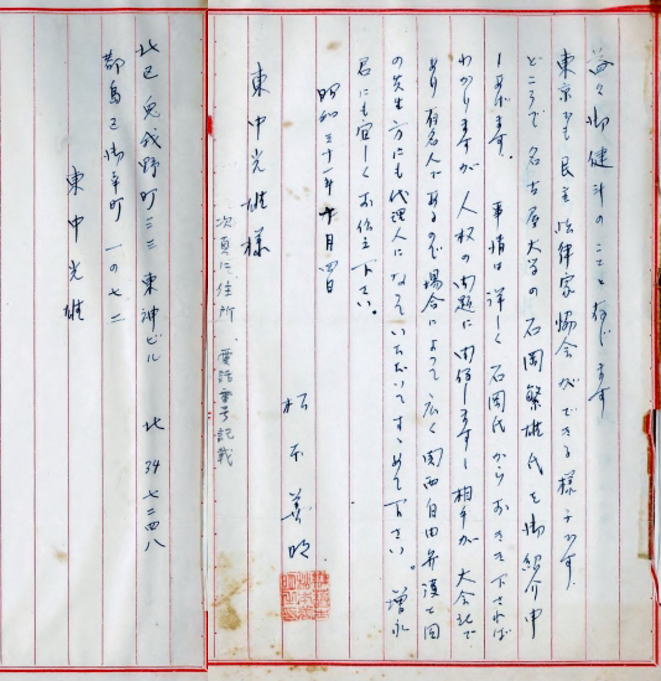 益々御健斗のことと存じます
東京でも民主法律家協会ができる様子です。
ところで名古屋大学の石岡繁雄氏を御紹介申
しあげます。事情は詳しく石岡氏からおきき下されば
わかりますが人権の問題に関係しますし相手が大会社で
あり有名人であるので場合によって広く関西自由弁護士団
の先生方にも代理人になっていただいてすすめて下さい。増永
君にも宜しくお伝え下さい。
昭和三十一年十月四日
松本 義明
東中光雄様
次頁に住所、電話番号記載
北区兎我野町三三東神ビル 北34七二四八
都島区御幸町一の七二
東中光雄